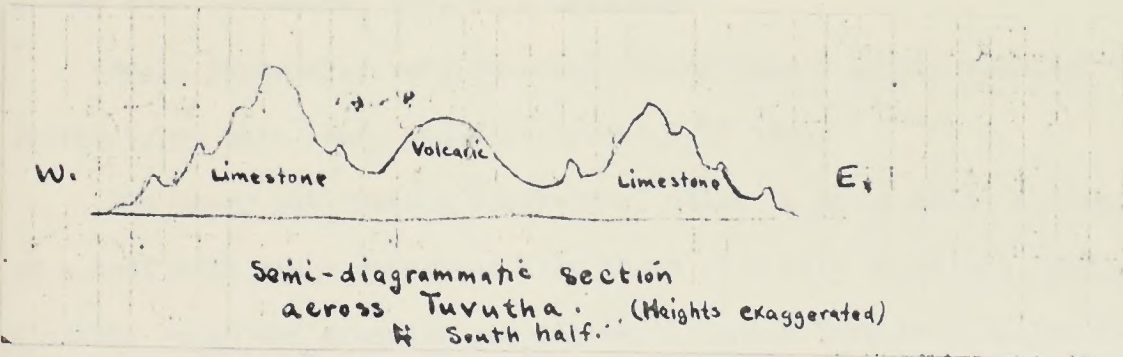 W. Limestone Volcanic Limestone E.
Semi-diagrammatic section
across Tuvutha. (Heights exaggerated)
South half.